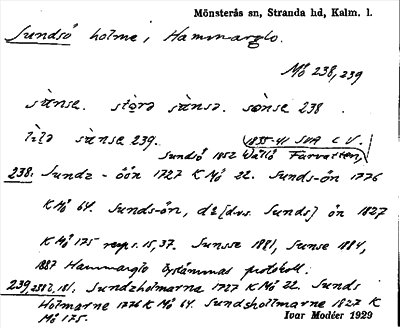 Mönsterås sn, Stranda hd, Kalm. l.
Sundsö holme, Hammarglo.
Mö 238, 239
sànse. stòrə sànsə. sənse 238
lìlə sànse 239. 1835-41 SVA C V.
Sundsö 1852 Wållö Farvatten
238. Sundz-öön 1727 K Mö 22. Sunds-ön 1776
K Mö 64. Sunds-ön, d:o [dvs. Sunds] ön 1827
K Mö 175 resp s. 15, 37. Sunsse 1881, Sunse 1884,
1887 Hammarglo bystämmas protokoll.
239, 181. Sundzholmarne 1727 K Mö 22. Sunds
Holmarne 1776 K Mö 64. Sundshollmarne 1827 K
Mö 175.
Ivar Modéer 1929